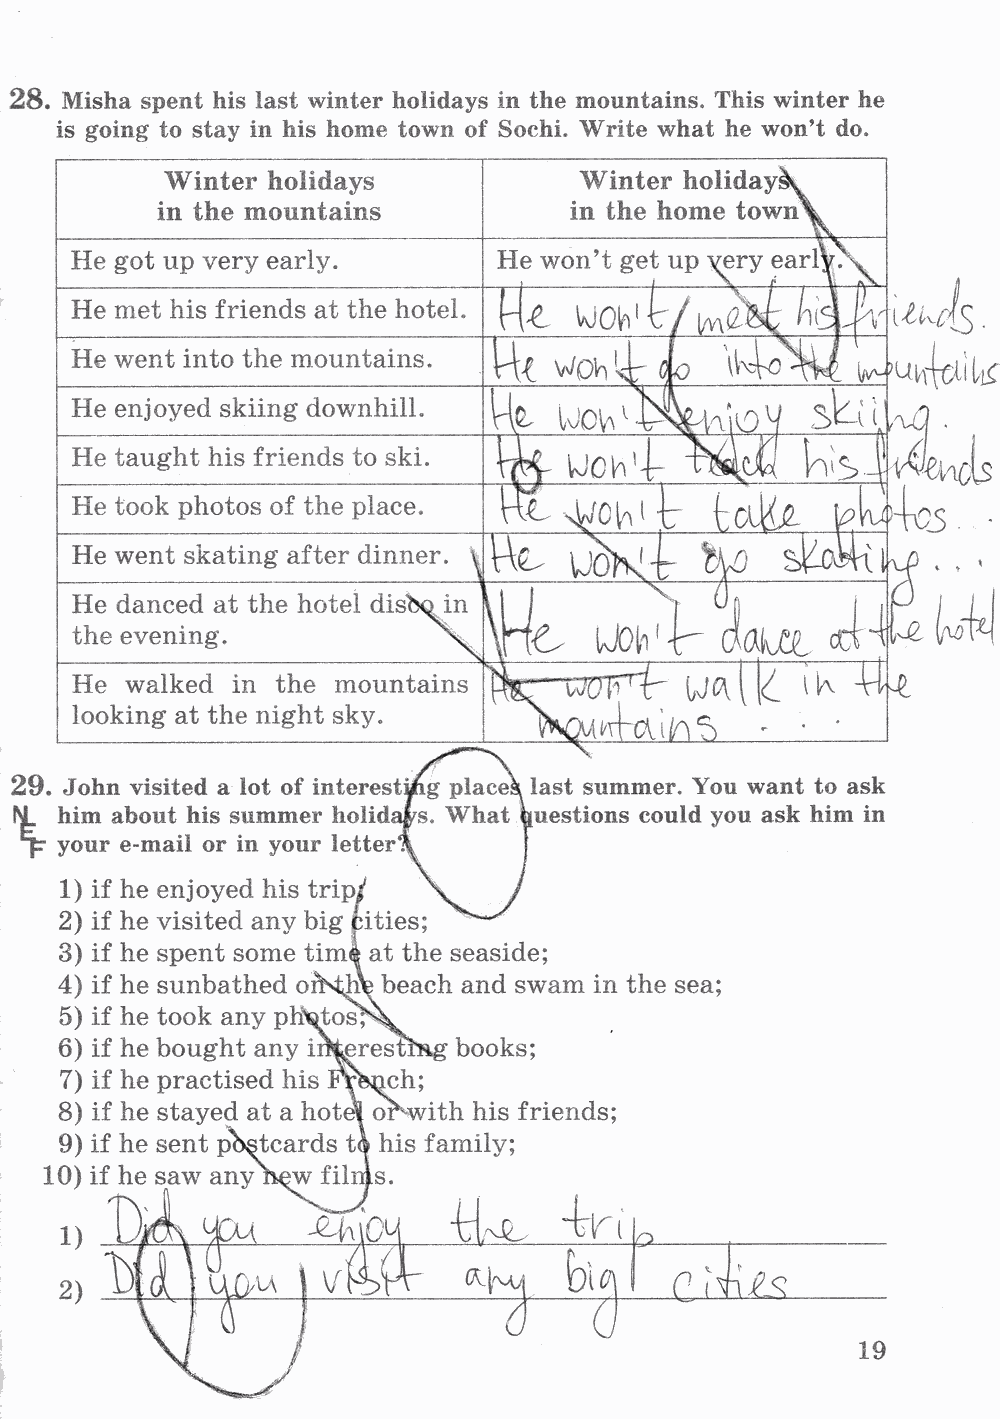 28. Misha spent his last winter holidays in the mountains. This winter he
is going to stay in his home town of Sochi. Write what he won't do.
Winter holidays
in the mountains
Winter holidays
in the home town
He got up very early.
He won't get up very early.
He met his friends at the hotel.
He won't meet his friends.
He went into the mountains.
He won't go into the mountains
He enjoyed skiing downhill.
He won't enjoy skiing.
He taught his friends to ski.
He won't teach his friends
He took photos of the place.
He won't take photos...
He went skating after dinner.
He won't go skating...
He danced at the hotel disco in
the evening.
He won't dance at the hotel
He walked in the mountains
looking at the night sky.
He won't walk in the
mountains . . .
29. John visited a lot of interesting places last summer. You want to ask
him about his summer holidays. What questions could you ask him in
your e-mail or in your letter?
NEF
1) if he enjoyed his trip;
2) if he visited any big cities;
3) if he spent some time at the seaside;
4) if he sunbathed on the beach and swam in the sea;
5) if he took any photos;
6) if he bought any interesting books;
7) if he practised his French;
8) if he stayed at a hotel or with his friends;
9) if he sent postcards to his family;
10) if he saw any new films.
1) Did you enjoy the trip
2) Did you visit any big cities
19